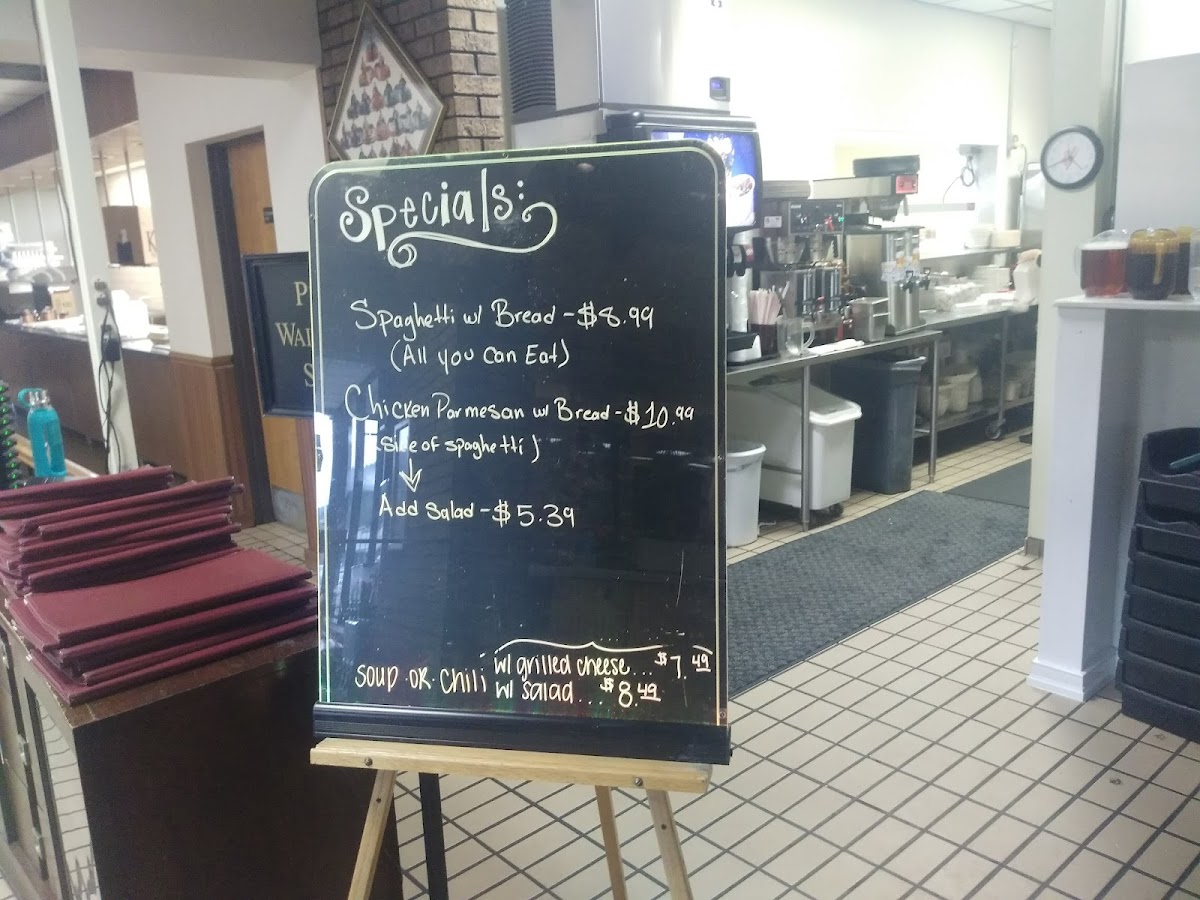 Specials:
Spaghetti w/ Bread - $8.99
(All you can Eat)
Chicken Parmesan w/ Bread - $10.99
(side of spaghetti)
Add Salad - $5.39
soup or chili w/ grilled cheese... $7.49
w/ salad.... $8.49
P
WAI
S